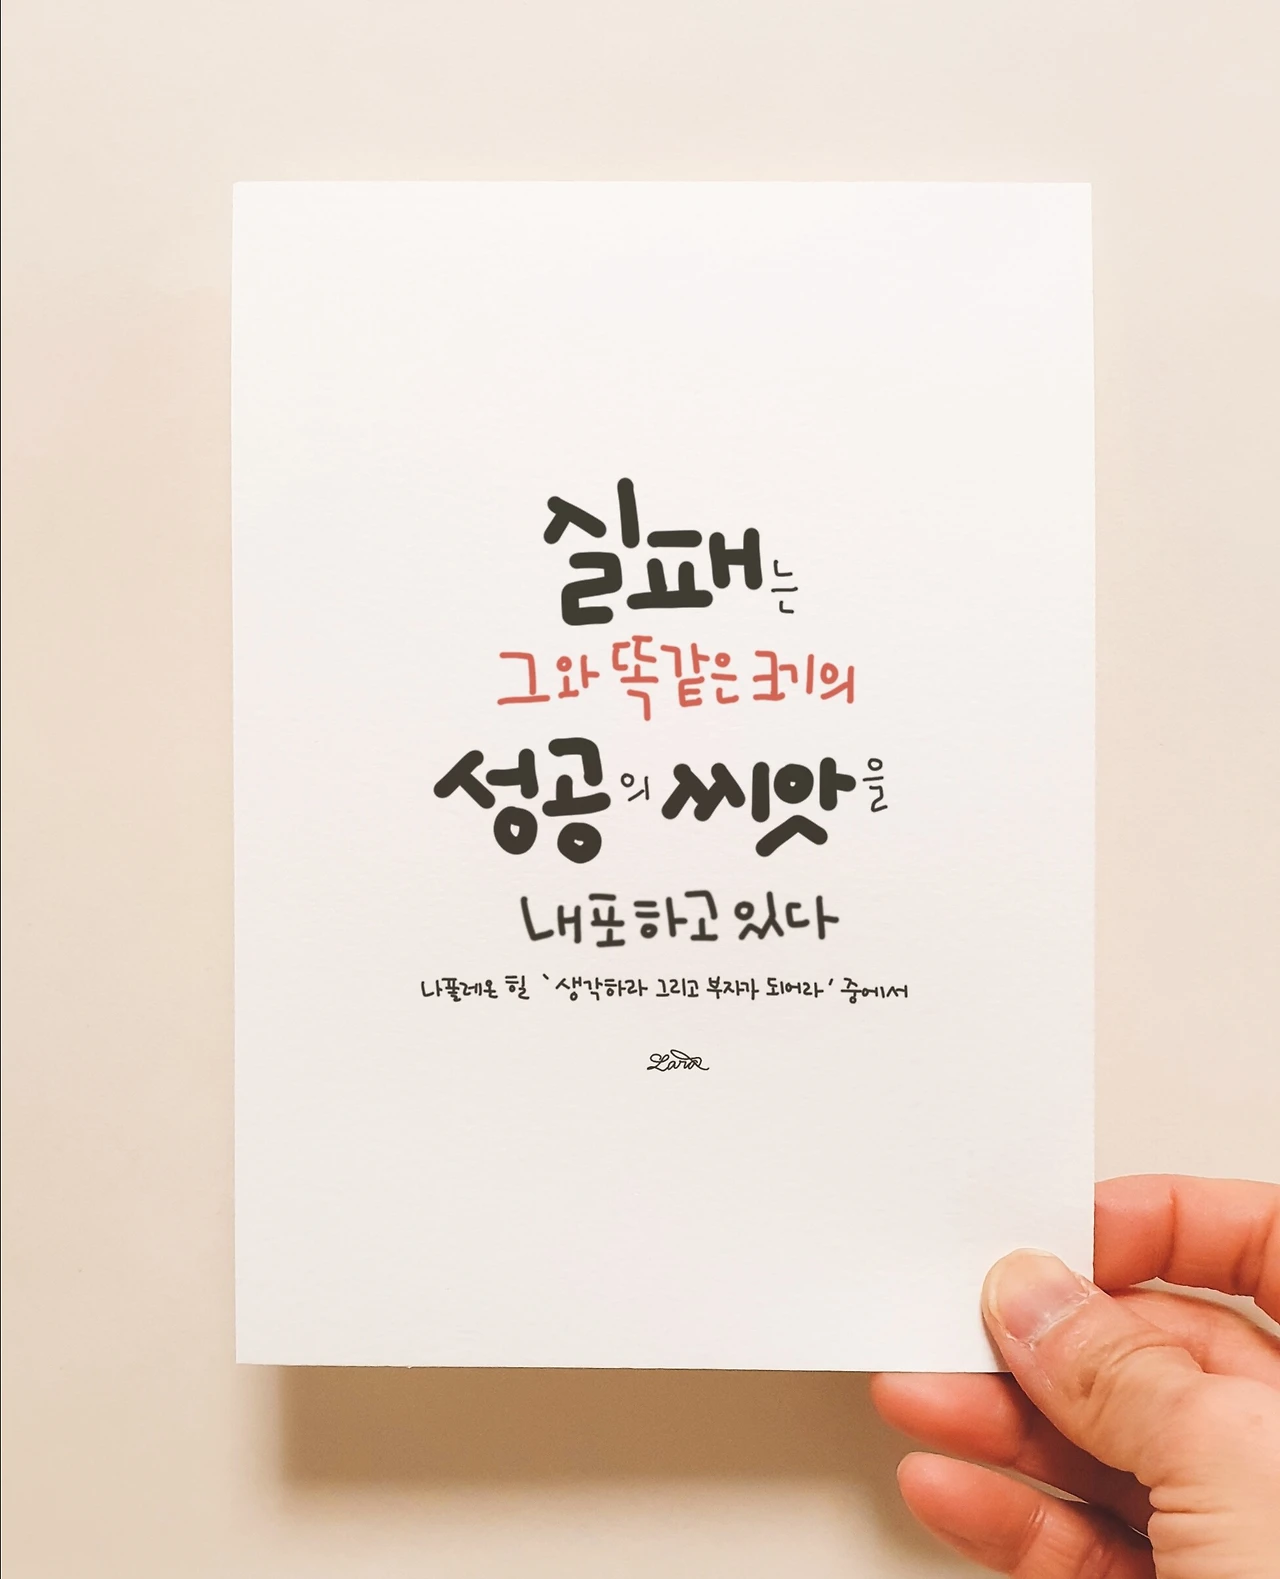 실패는
그와 똑같은 크기의
성공의 씨앗을
내포하고 있다
나폴레온 힐 '생각하라 그리고 부자가 되어라' 중에서
Lara